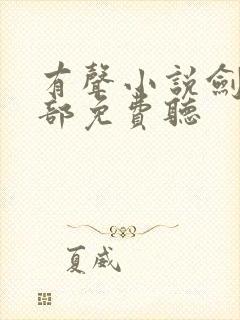 有聲小說劍
部免費聽
夏威